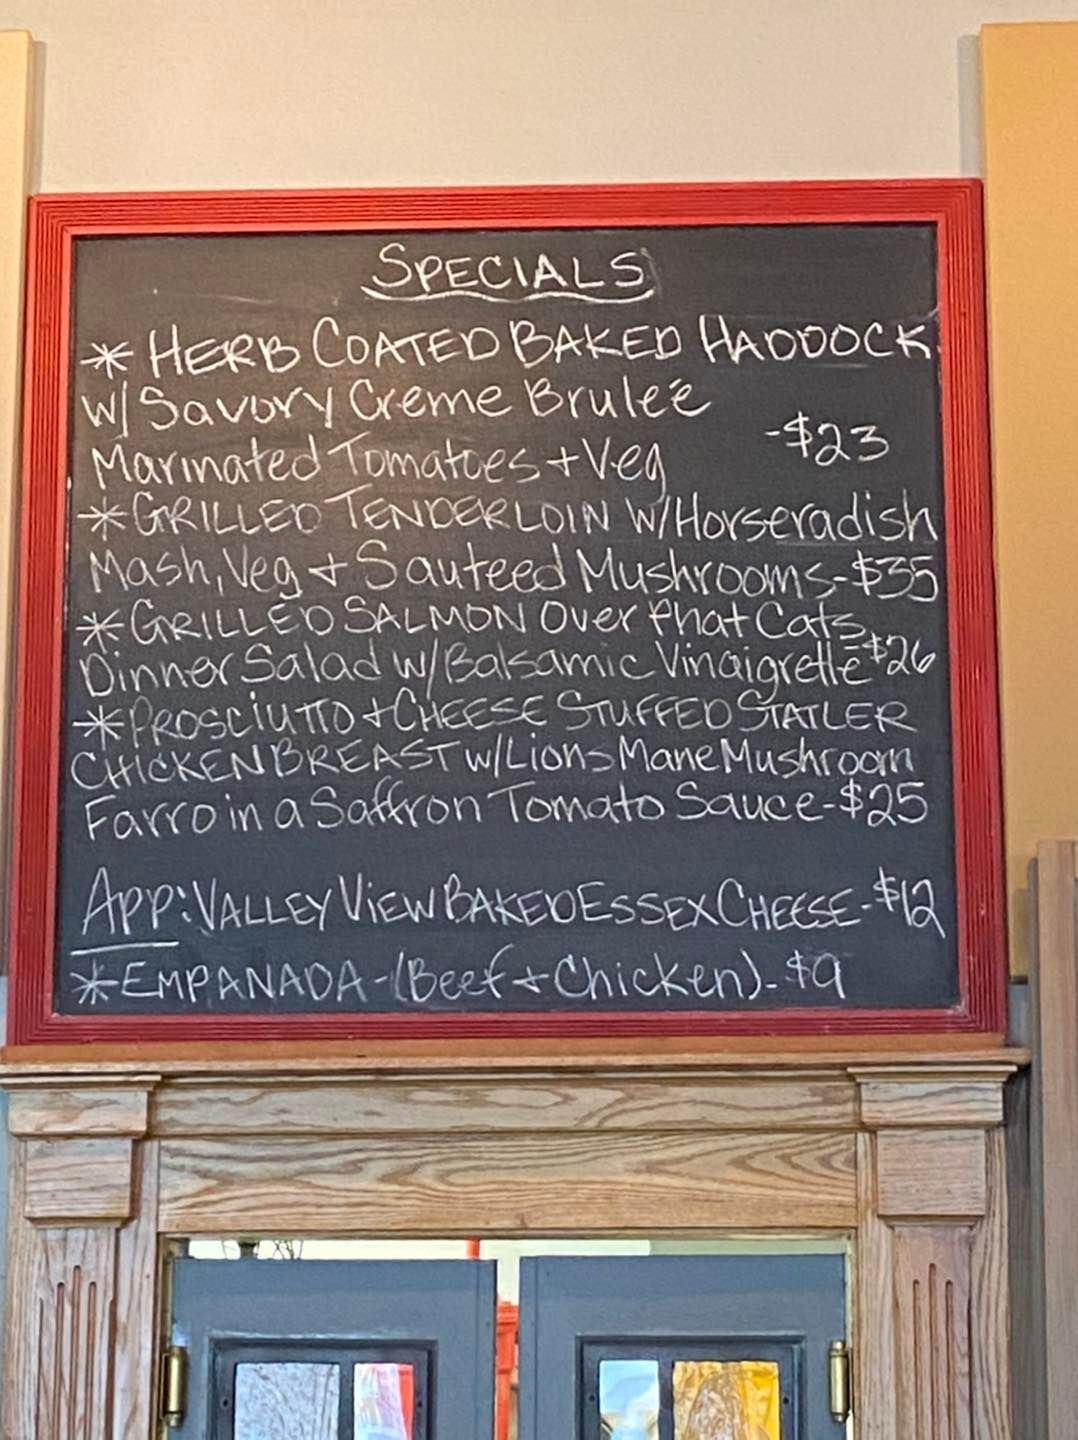 SPECIALS
* HERB COATED BAKED HADDOCK
w/ Savory Creme Brulee
Marinated Tomatoes + Veg -$23
* GRILLED TENDERLOIN w/Horseradish
Mash, Veg + Sauteed Mushrooms-$35
* GRILLED SALMON Over Phat Cats
Dinner Salad w/Balsamic Vinaigrette $26
* PROSCIUTTO + CHEESE STUFFED STATLER
CHICKEN BREAST w/Lions Mane Mushroom
Farro in a Saffron Tomato Sauce-$25
APP: VALLEY VIEW BAKED ESSEX CHEESE-$12
* EMPANADA-(Beef + Chicken)-$9